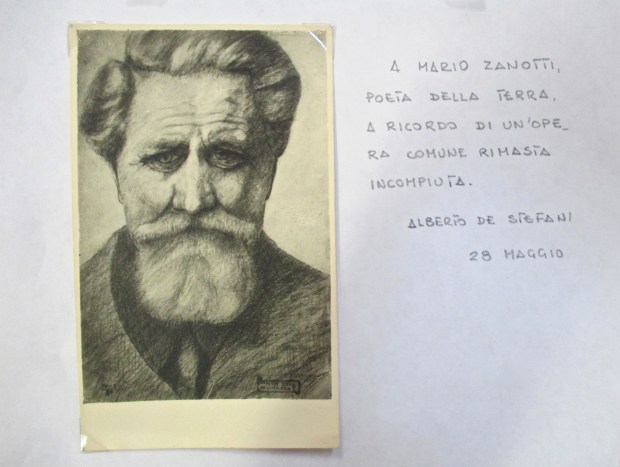 A MARIO ZANOTTI,
POETA DELLA TERRA,
A RICORDO DI UN'OPE_
RA COMUNE RIMASTA
INCOMPIUTA.
ALBERTO DE STEFANI
28 MAGGIO